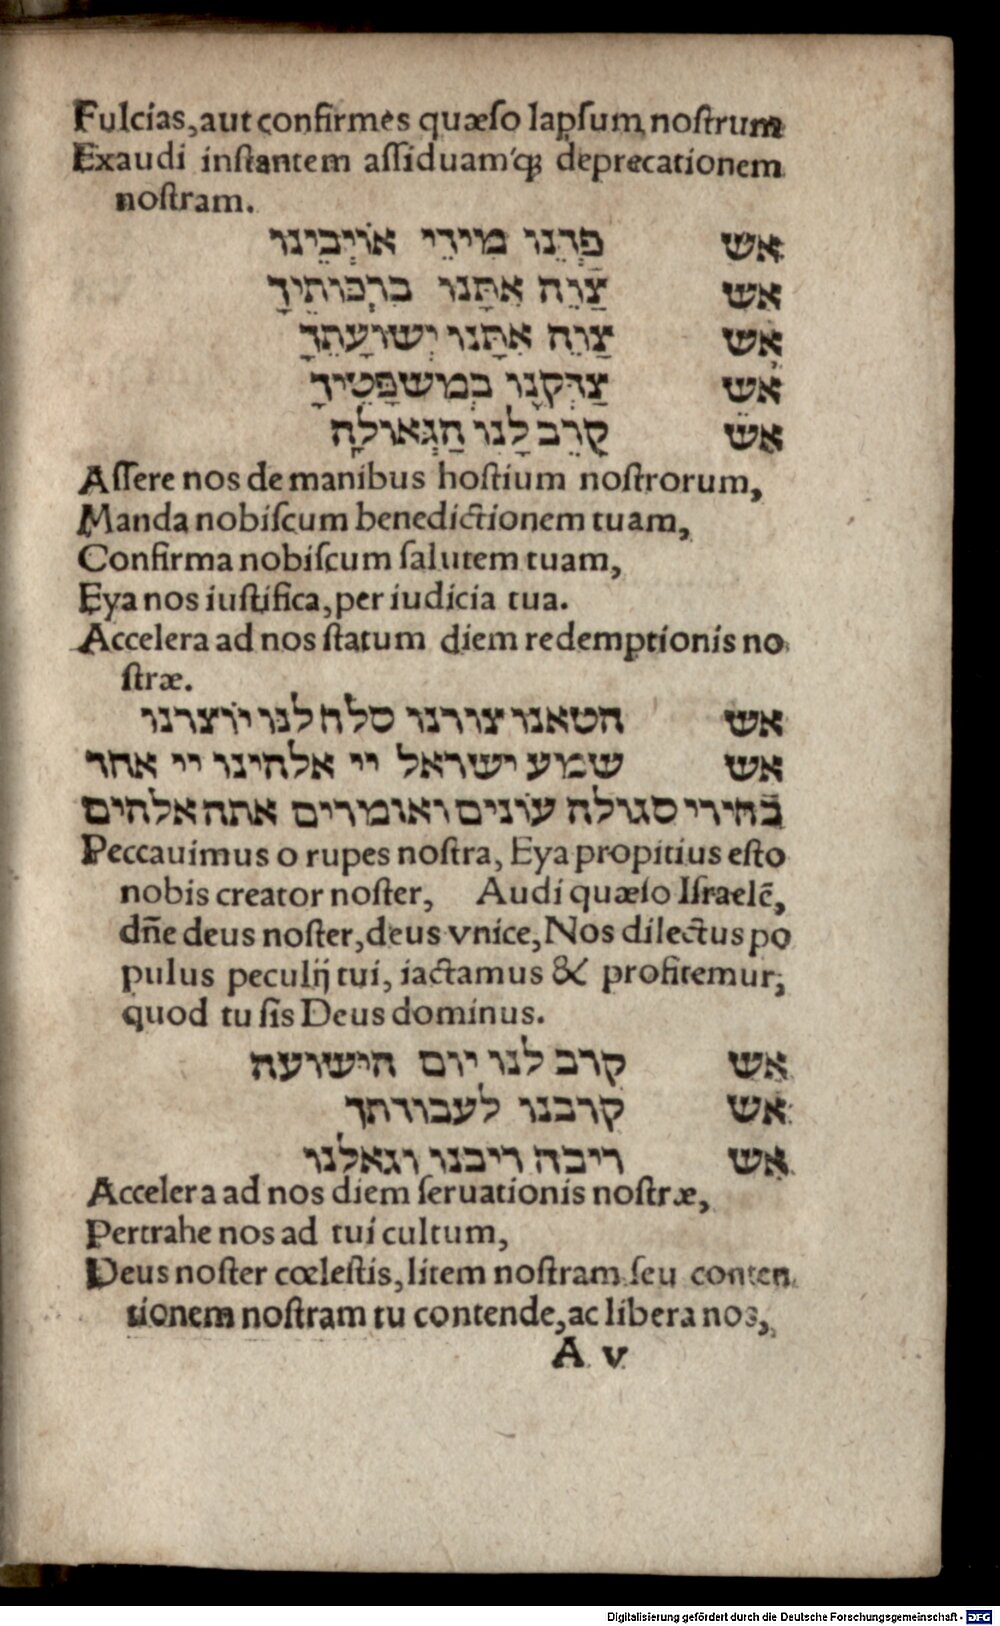 Fulcias, aut confirmes quæso lapsum nostrum
Exaudi instantem assiduamq́ꝫ deprecationem
nostram.
אש פְּדֵנוּ מִידֵי אוֹיְבֵינוּ
אש צַוֵּה אִתָּנוּ בִּרְכּוֹתֶיךָ
אש צַוֵּה אִתָּנוּ יְשׁוּעָתֶךָ
אש צַדְּקֵנוּ בְּמִשְׁפָּטֶיךָ
אש קָרֵב לָנוּ הַגְּאוּלָּה
Assere nos de manibus hostium nostrorum,
Manda nobiscum benedictionem tuam,
Confirma nobiscum salutem tuam,
Eya nos iustifica, per iudicia tua.
Accelera ad nos statum diem redemptionis no
stræ.
אש חטאנו צורנו סלח לנו יוצרנו
אש שמע ישראל יי אלהינו יי אחד
בחירי סגולה עונים ואומרים אתה אלהים
Peccauimus o rupes nostra, Eya propitius esto
nobis creator noster, Audi quæso Israelē,
dñe deus noster, deus vnice, Nos dilectus po
pulus peculij tui, iactamus & profitemur,
quod tu sis Deus dominus.
אש קרב לנו יום הישועה
אש קרבנו לעבודתך
אש ריבה ריבנו וגאלנו
Accelera ad nos diem seruationis nostræ,
Pertrahe nos ad tui cultum,
Deus noster cœlestis, litem nostram seu conten
tionem nostram tu contende, ac libera nos,
A v
Digitalisierung gefördert durch die Deutsche Forschungsgemeinschaft - DFG